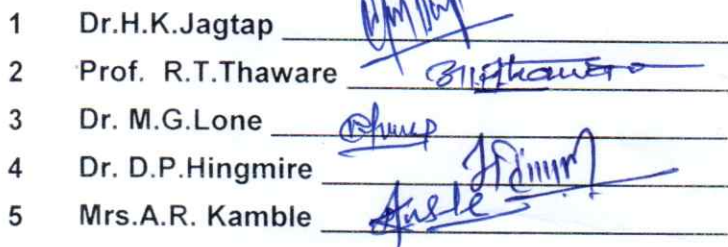 1 Dr.H.K.Jagtap
2 Prof. R.T.Thaware
3 Dr. M.G.Lone
4 Dr. D.P.Hingmire
5 Mrs.A.R. Kamble